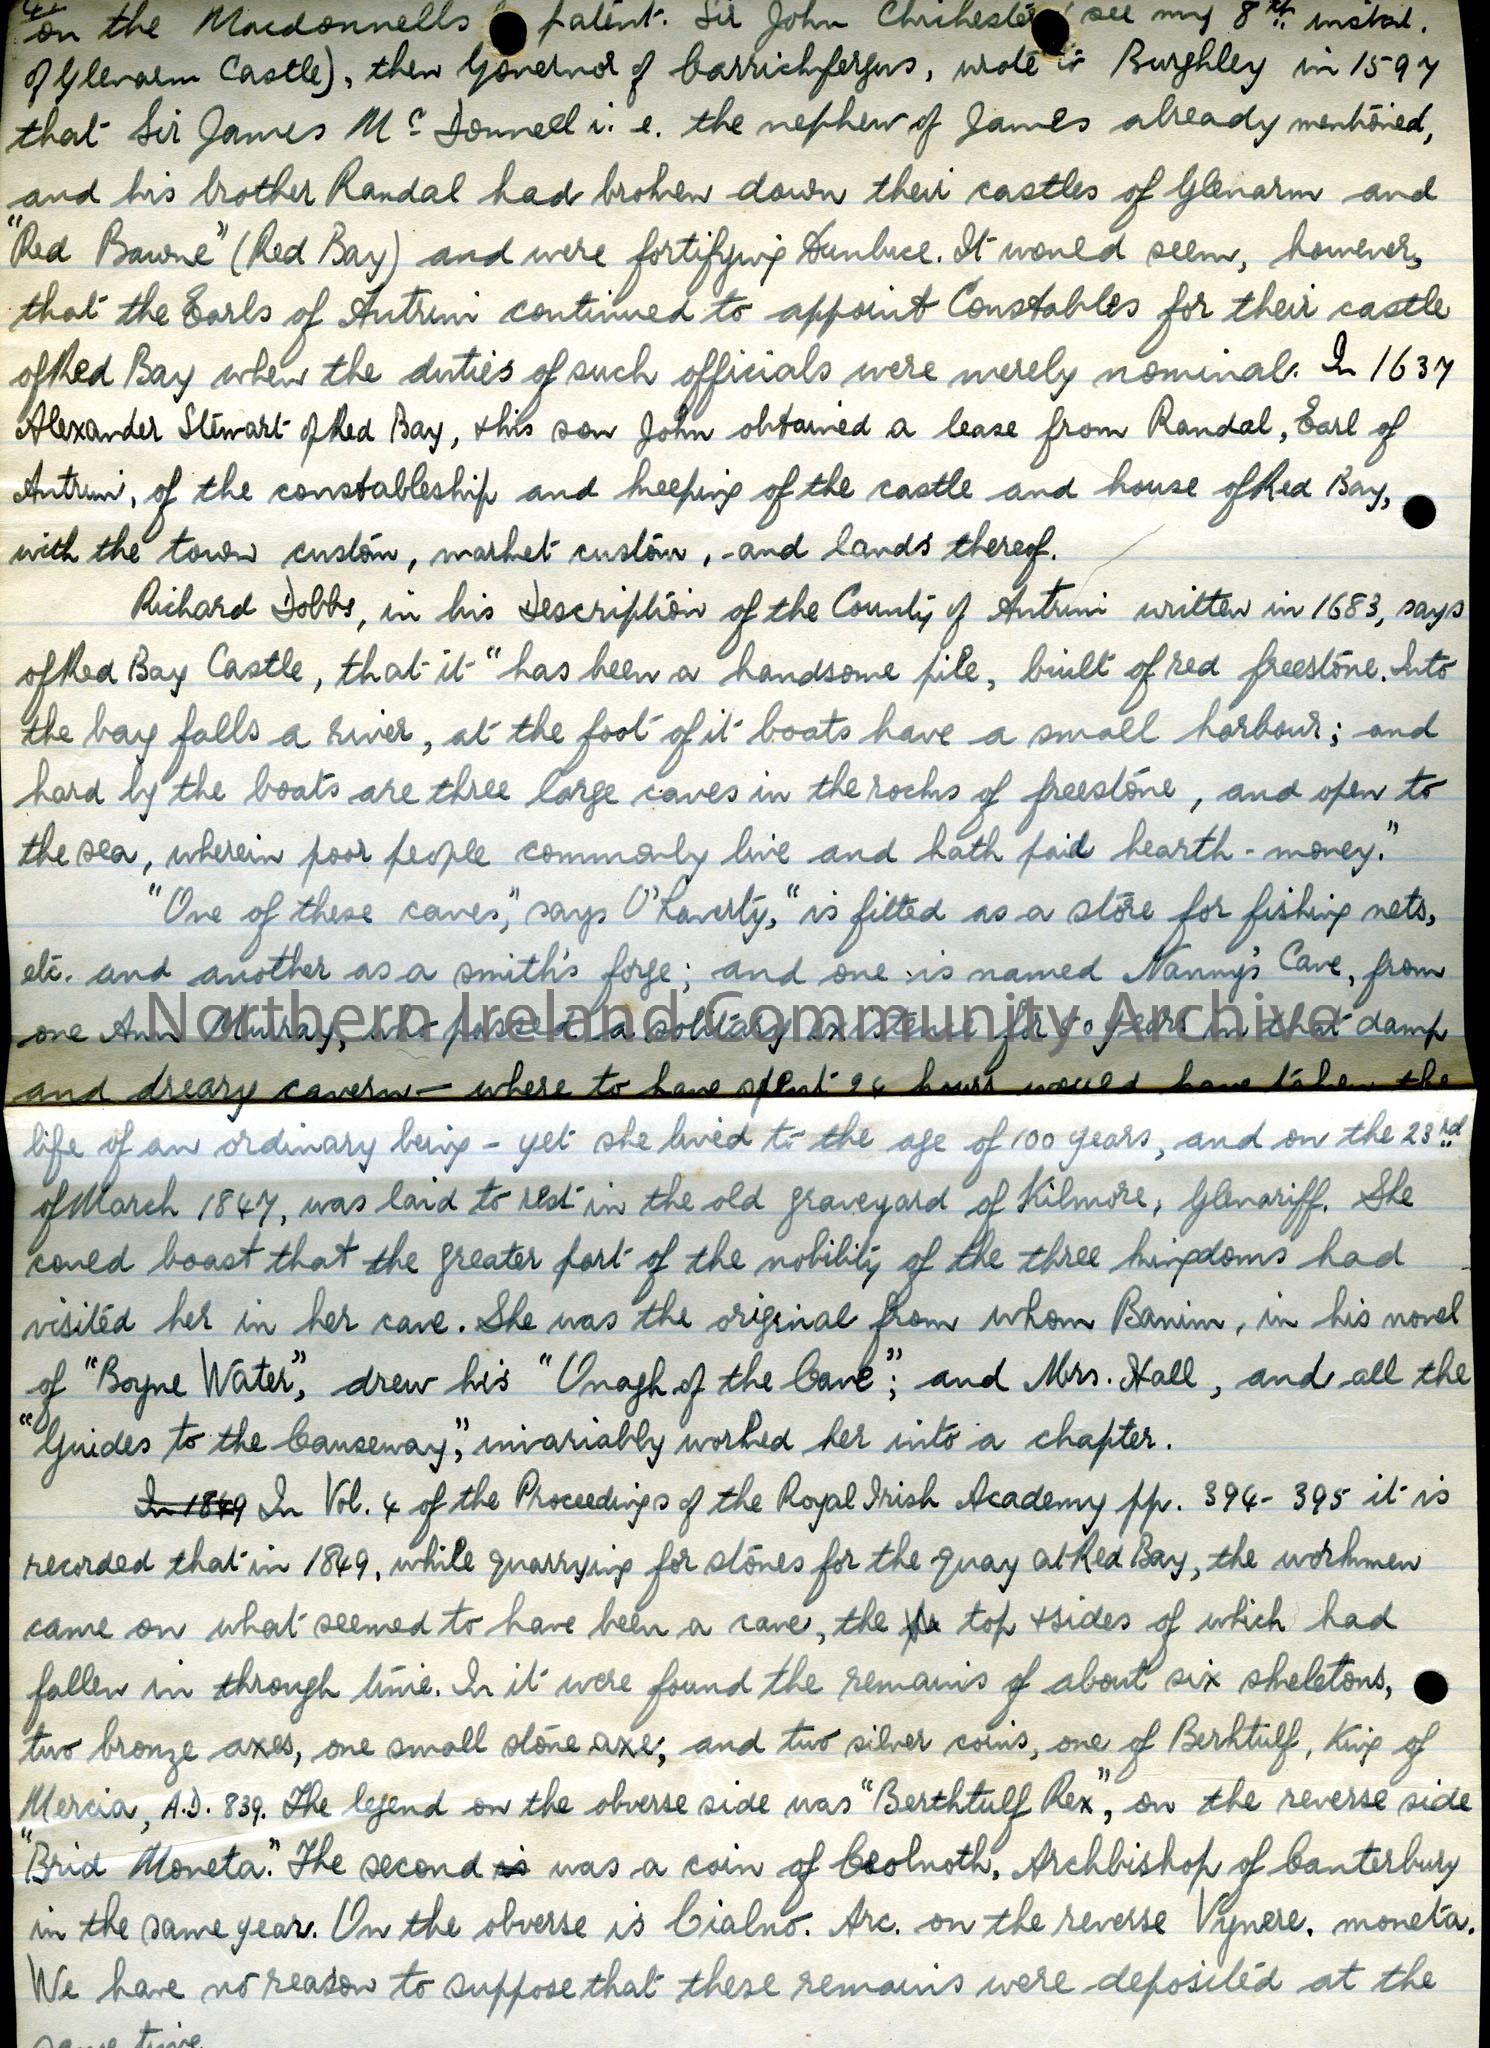 on the Macdonnells patent. Sir John Chichester (see my 8th instal.
of Glenarm Castle), then Governor of Carrickfergus, wrote to Burghley in 1597
that Sir James Mc Donnell i.e. the nephew of James already mentioned,
and his brother Randal had broken down their castles of Glenarm and
"Red Bawne" (Red Bay) and were fortifying Dunluce. It would seem, however,
that the Earls of Antrim continued to appoint Constables for their castle
of Red Bay when the duties of such officials were merely nominal. In 1637
Alexander Stewart of Red Bay, & his son John obtained a lease from Randal, Earl of
Antrim, of the constableship and keeping of the castle and house of Red Bay,
with the town custom, market custom, - and lands thereof.
Richard Dobbs, in his Description of the County of Antrim written in 1683, says
of Red Bay Castle, that it "has been a handsome pile, built of red freestone. Into
the bay falls a river, at the foot of it boats have a small harbour; and
hard by the boats are three large caves in the rocks of freestone, and open to
the sea, wherein poor people commonly live and hath paid hearth-money."
"One of these caves," says O'Laverty, "is fitted as a store for fishing nets,
etc. and another as a smith's forge; and one is named Nanny's Cave, from
Northern Ireland Community Archive
one Ann Murray, who passed a solitary existence for 50 years in that damp
and dreary cavern — where to have spent 24 hours would have taken the
life of an ordinary being - yet she lived to the age of 100 years, and on the 23rd
of March 1847, was laid to rest in the old graveyard of Kilmore, Glenariff. She
could boast that the greater part of the nobility of the three kingdoms had
visited her in her cave. She was the original from whom Banim, in his novel
of "Boyne Water", drew his "Onagh of the Cave"; and Mrs. Hall, and all the
"Guides to the Causeway", invariably worked her into a chapter.
In 1849 In Vol. 4 of the Proceedings of the Royal Irish Academy pp. 394-395 it is
recorded that in 1849, while quarrying for stones for the quay at Red Bay, the workmen
came on what seemed to have been a cave, the top & sides of which had
fallen in through time. In it were found the remains of about six skeletons,
two bronze axes, one small stone axe; and two silver coins, one of Berhtulf, King of
Mercia, A.D. 839. The legend on the obverse side was "Berthtulf Rex", on the reverse side
"Brid Moneta." The second is was a coin of Ceolnoth, Archbishop of Canterbury
in the same year. On the obverse is Cialno. Arc. on the reverse Vynere. moneta.
We have no reason to suppose that these remains were deposited at the
same time